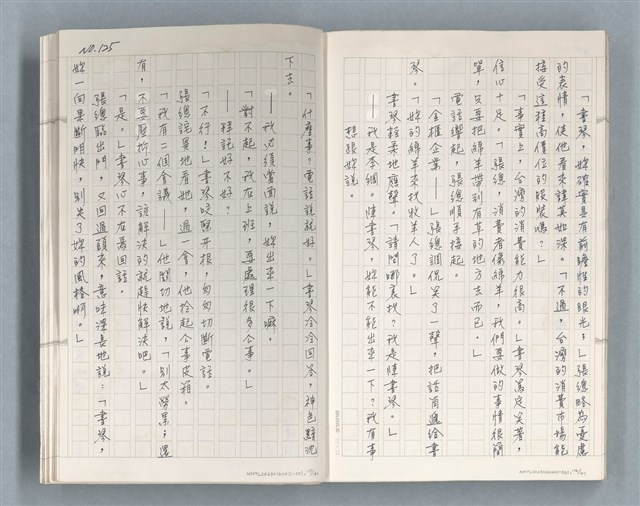 「書琴，妳確實具有前瞻性的眼光；」張總略為憂慮
的表情，使他看來諱莫如深。「不過，台灣的消費市場能
接受這種高價位的服裝嗎？」
「事實上，台灣的消費能力很高。」書琴篤定笑著，
信心十足。「張總，消費者像綿羊，我們要做的事情很簡
單，只要把綿羊帶到有草的地方去而已。」
電話響起，張總順手接起。
「全推企業——」張總調侃笑了一聲，把話筒遞給書
琴。「妳的綿羊來找牧羊人了。」
書琴輕柔地應聲。「請問哪裏找？我是陳書琴。」
——我是李綱。陳書琴，妳能不能出來一下？我有事
想跟妳說。
NO. 125
「什麼事？電話說說就好。」書琴冷冷回答，神色黯沈
下去。
——我必須當面說，妳出來一下嘛。
「對不起，我在上班，要處理很多公事。」
——拜託好不好？
「不行！」書琴咬緊牙根，匆匆切斷電話。
張總詫異地看她，過一會，他拾起公事皮箱。
「我有二個會議——」他關切地說，「別太勞累；還
有，不要壓抑心事，該解決的就趕快解決吧。」
「是。」書琴心不在焉回話。
張總臨出門，又回過頭來，意味深長地說：「書琴，
妳一向果斷明快，別失了妳的風格啊。」